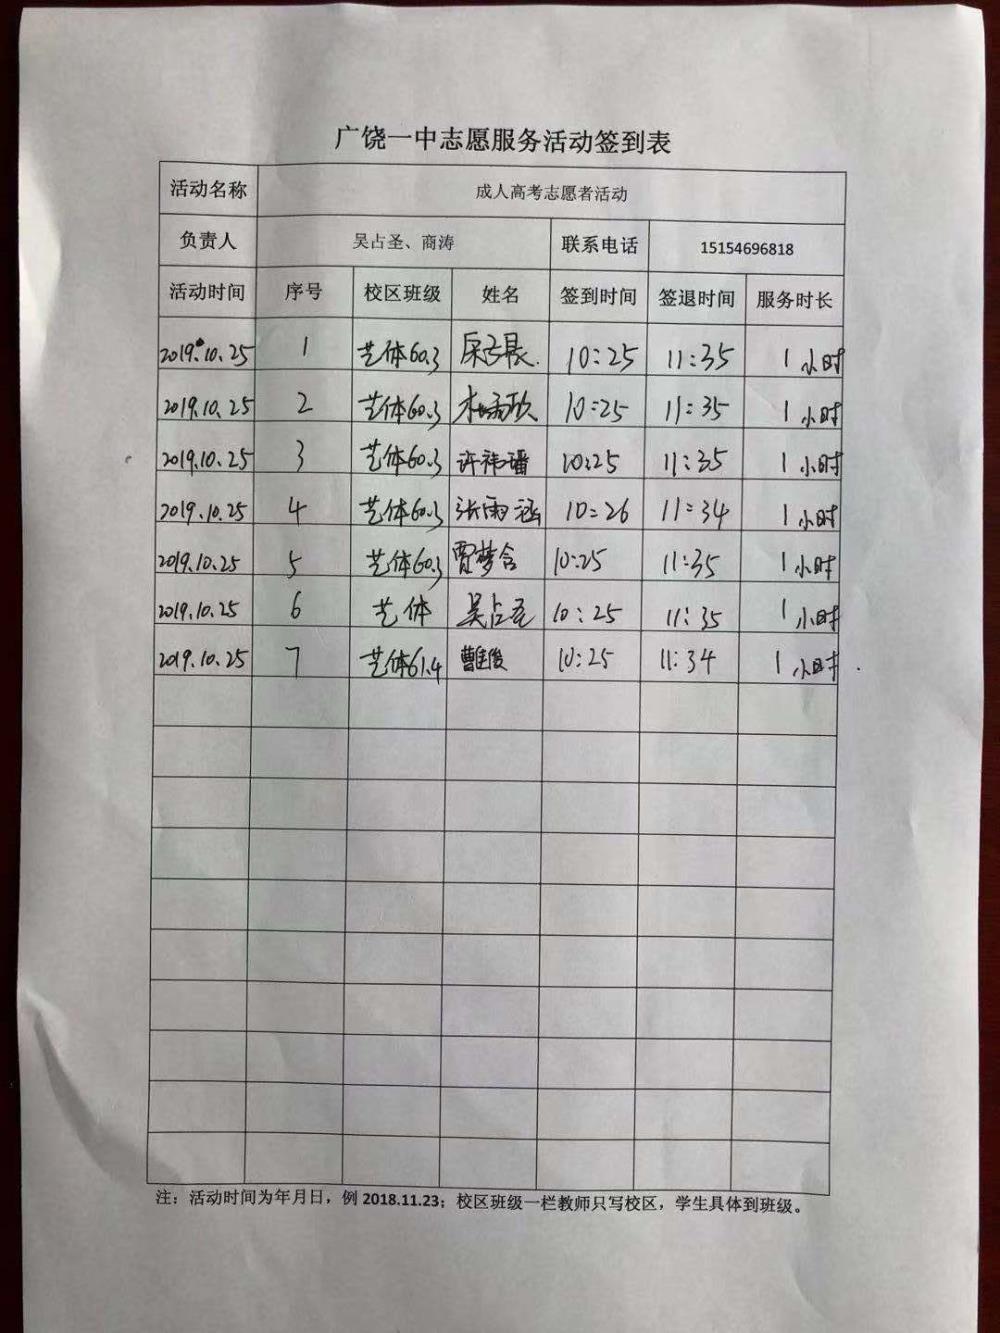 广饶一中志愿服务活动签到表
活动名称 成人高考志愿者活动
负责人 吴占圣、商涛 联系电话 15154696818
活动时间 序号 校区班级 姓名 签到时间 签退时间 服务时长
2019.10.25 1 艺体60.3 10:25 11:35 1小时
2019.10.25 2 艺体60.3 10:25 11:35 1小时
2019.10.25 3 艺体60.3 许祎璠 10:25 11:35 1小时
2019.10.25 4 艺体60.3 张雨涵 10:26 11:34 1小时
2019.10.25 5 艺体60.3 贾梦含 10:25 11:35 1小时
2019.10.25 6 艺体 吴占圣 10:25 11:35 1小时
2019.10.25 7 艺体61.4 10:25 11:34 1小时
注：活动时间为年月日，例 2018.11.23；校区班级一栏教师只写校区，学生具体到班级。